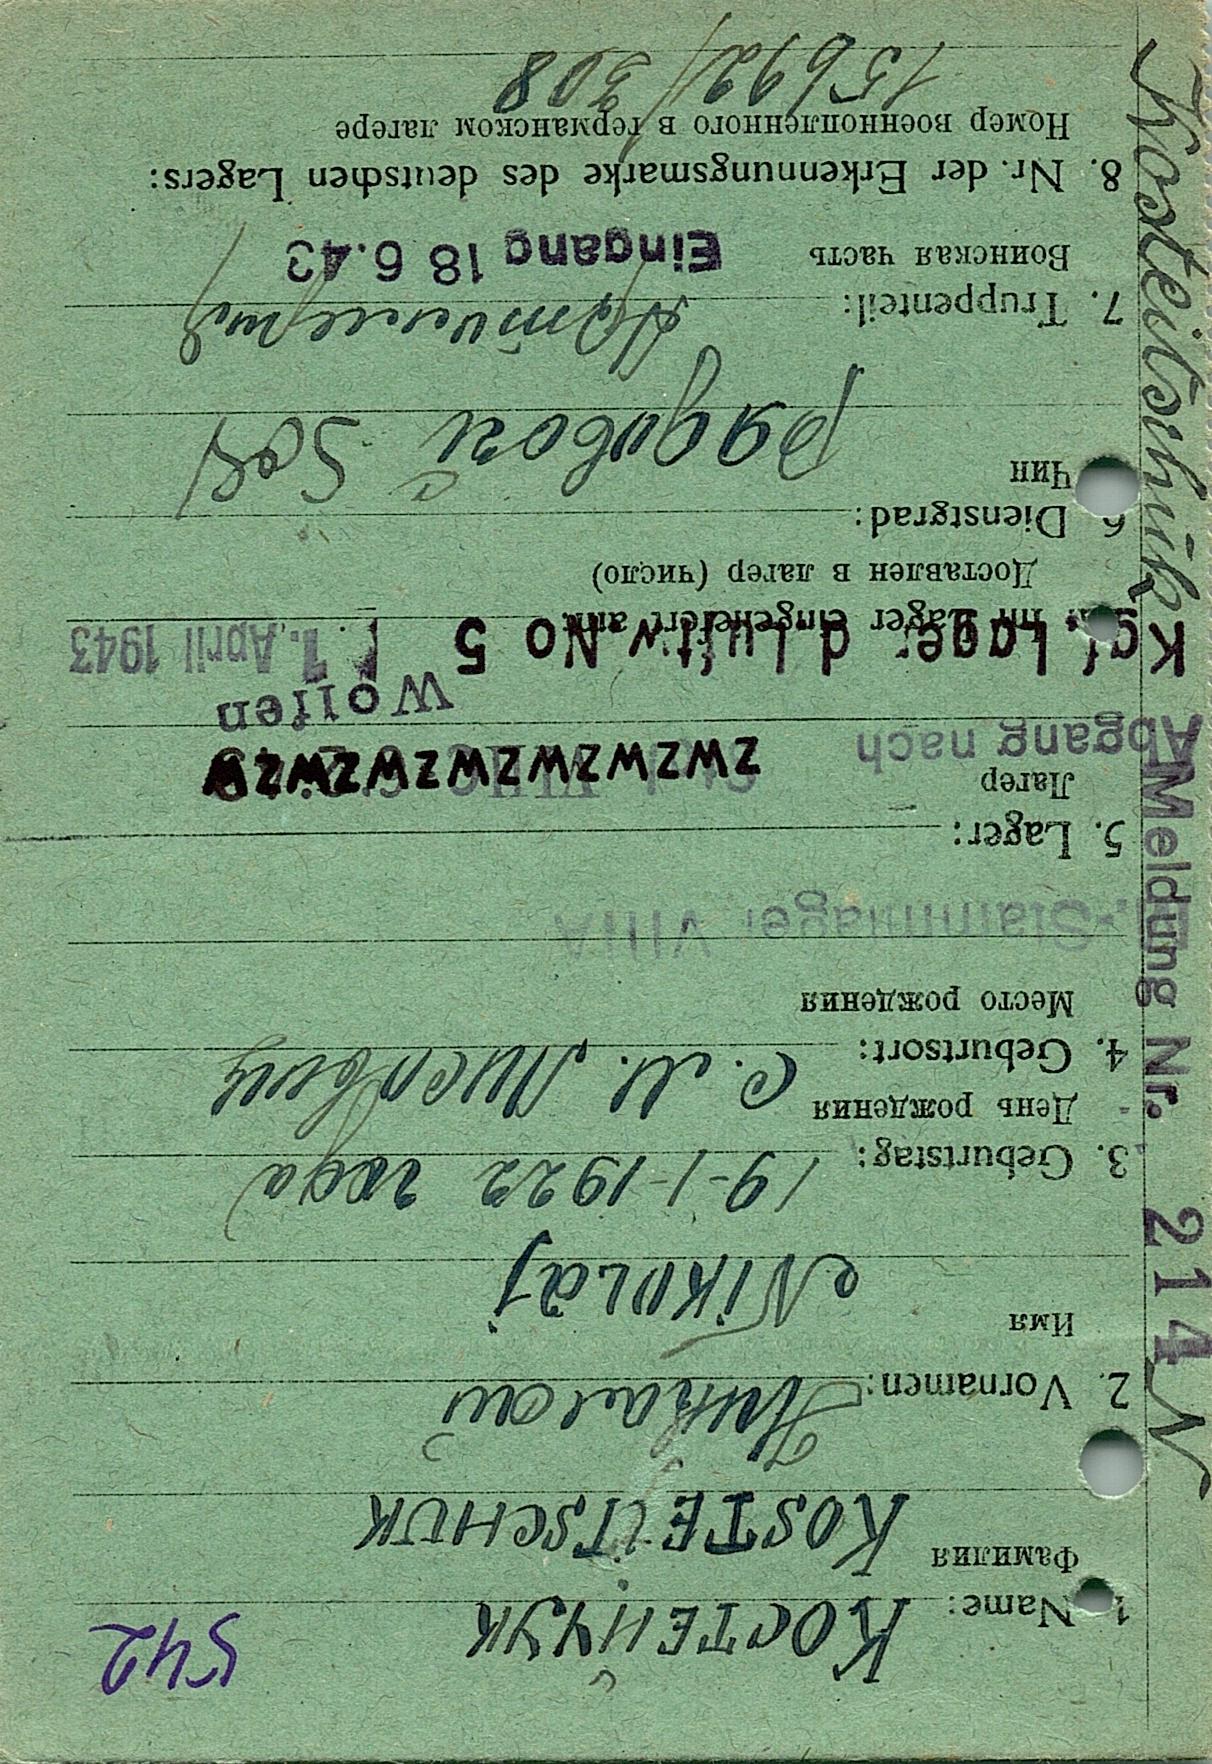 542
1. Name: КОСТЕЙЧУК
Фамилия KOSTEITSCHUK
2. Vornamen: Николай
Имя NIKOLAJ
3. Geburtstag: 19-1-1922 года
День рождения
4. Geburtsort: С. М.
Место рождения
M.-Stammlager VIIIA
5. Lager:
Лагер
Abgang nach ZWZWZWZWZWZWZW
Wolfen
Kgf. Lager d Luftw No 5
17. April 1943
im Lager eingeliefert am:
Доставлен в лагер (число)
6. Dienstgrad:
Чин рядовой Sol
7. Truppenteil:
Воинская часть Eingang 18 6.43
8. Nr. der Erkennungsmarke des deutschen Lagers:
Номер военнопленного в германском лагере
15692/308
Kosteitschuk
Meldung Nr. 214 N